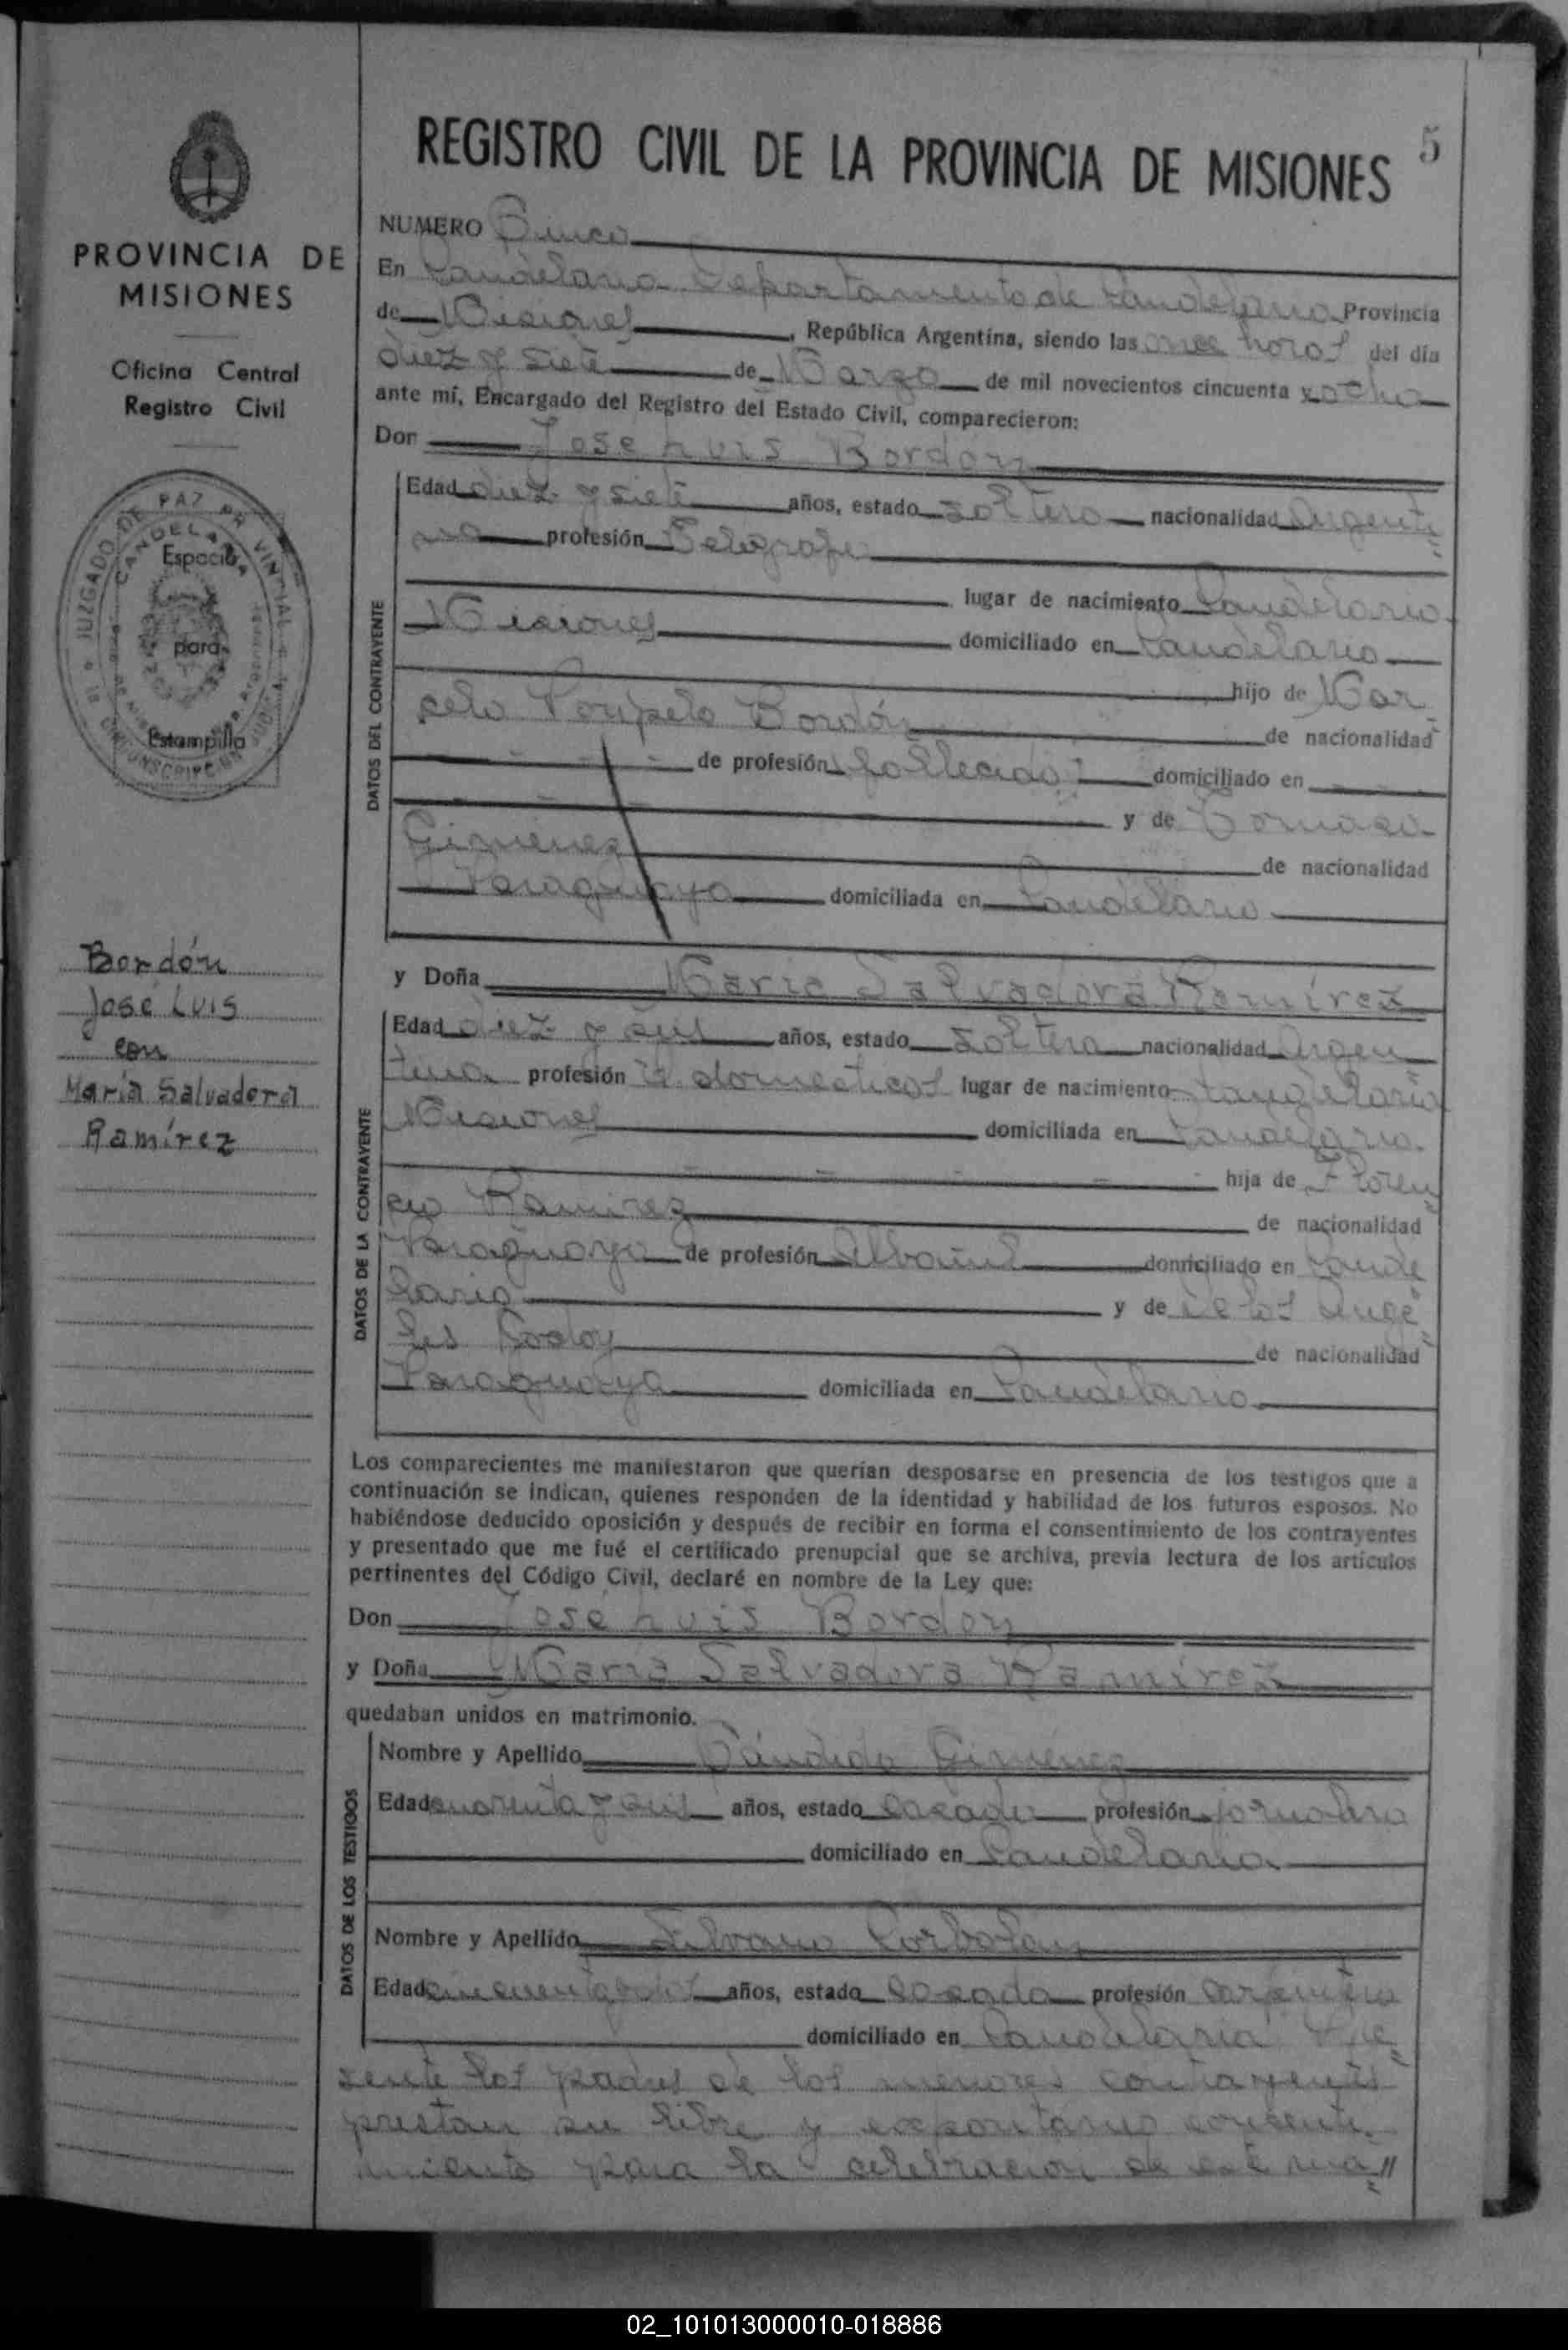 REGISTRO CIVIL DE LA PROVINCIA DE MISIONES 5
PROVINCIA DE
MISIONES
Oficina Central
Registro Civil
JUZGADO DE PAZ
CANDELARIA
Espacio
para
Estampilla
Bordón
José Luis
con
María Salvadora
Ramírez
NUMERO Cinco
En Candelaria Departamento de Candelaria Provincia
de Misiones, República Argentina, siendo las once horas del día
diez y siete de Marzo de mil novecientos cincuenta y ocho
ante mí, Encargado del Registro del Estado Civil, comparecieron:
Don José Luis Bordón
DATOS DEL CONTRAYENTE
Edad diez y siete años, estado soltero nacionalidad Argenti
na profesión
lugar de nacimiento Candelaria
Misiones domiciliado en Candelaria
hijo de Mar
celo Bordón de nacionalidad
de profesión fallecido domiciliado en
y de Tomasa
Giménez de nacionalidad
Paraguaya domiciliada en Candelaria
y Doña María Salvadora Ramírez
DATOS DE LA CONTRAYENTE
Edad diez y seis años, estado soltera nacionalidad Argen
tina profesión q. domesticos lugar de nacimiento Candelaria
Misiones domiciliada en Candelaria
hija de Floren
cio Ramirez de nacionalidad
Paraguaya de profesión Albañil domiciliado en Cande
laria y de de los Ange
les Godoy de nacionalidad
Paraguaya domiciliada en Candelaria
Los comparecientes me manifestaron que querían desposarse en presencia de los testigos que a
continuación se indican, quienes responden de la identidad y habilidad de los futuros esposos. No
habiéndose deducido oposición y después de recibir en forma el consentimiento de los contrayentes
y presentado que me fué el certificado prenupcial que se archiva, previa lectura de los artículos
pertinentes del Código Civil, declaré en nombre de la Ley que:
Don José Luis Bordon
y Doña María Salvadora Ramírez
quedaban unidos en matrimonio.
DATOS DE LOS TESTIGOS
Nombre y Apellido Cándido Giménez
Edad cuarenta y seis años, estado casado profesión jornalero
domiciliado en Candelaria
Nombre y Apellido Silvano
Edad años, estado casado profesión carpintero
domiciliado en Candelaria Pre
sente los padres de los menores contrayentes
prestan su libre y expontanio consenti
miento para la celebracion de este ma //
02_101013000010-018886